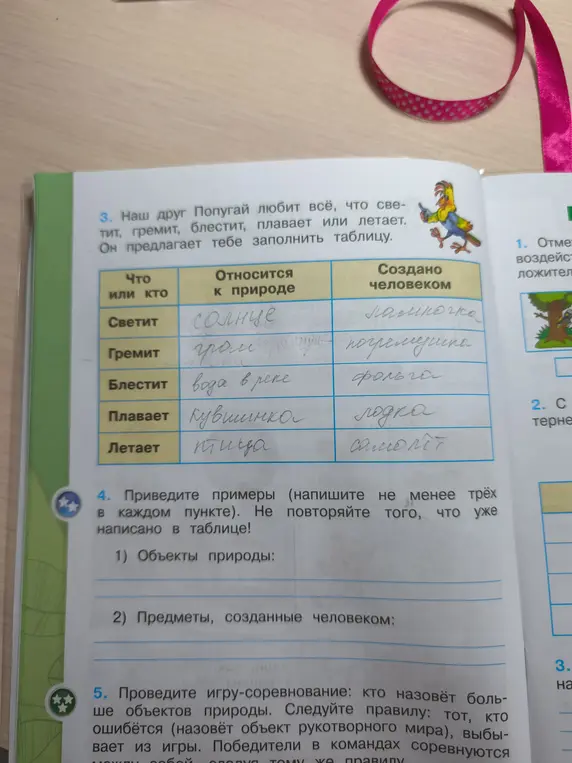 3. Наш друг Попугай любит всё, что све-
тит, гремит, блестит, плавает или летает.
Он предлагает тебе заполнить таблицу.
Что или кто | Относится к природе | Создано человеком
Светит | солнце | лампочка
Гремит | гром | погремушка
Блестит | вода в реке | фольга
Плавает | кувшинка | лодка
Летает | птица | самолёт
4. Приведите примеры (напишите не менее трёх
в каждом пункте). Не повторяйте того, что уже
написано в таблице!
1) Объекты природы:
2) Предметы, созданные человеком:
5. Проведите игру-соревнование: кто назовёт боль-
ше объектов природы. Следуйте правилу: тот, кто
ошибётся (назовёт объект рукотворного мира), выбы-
вает из игры. Победители в командах соревнуются
между собой, следуя тому же правилу.
1. Отме
воздейст
ложител
2. С
терне
3.
на